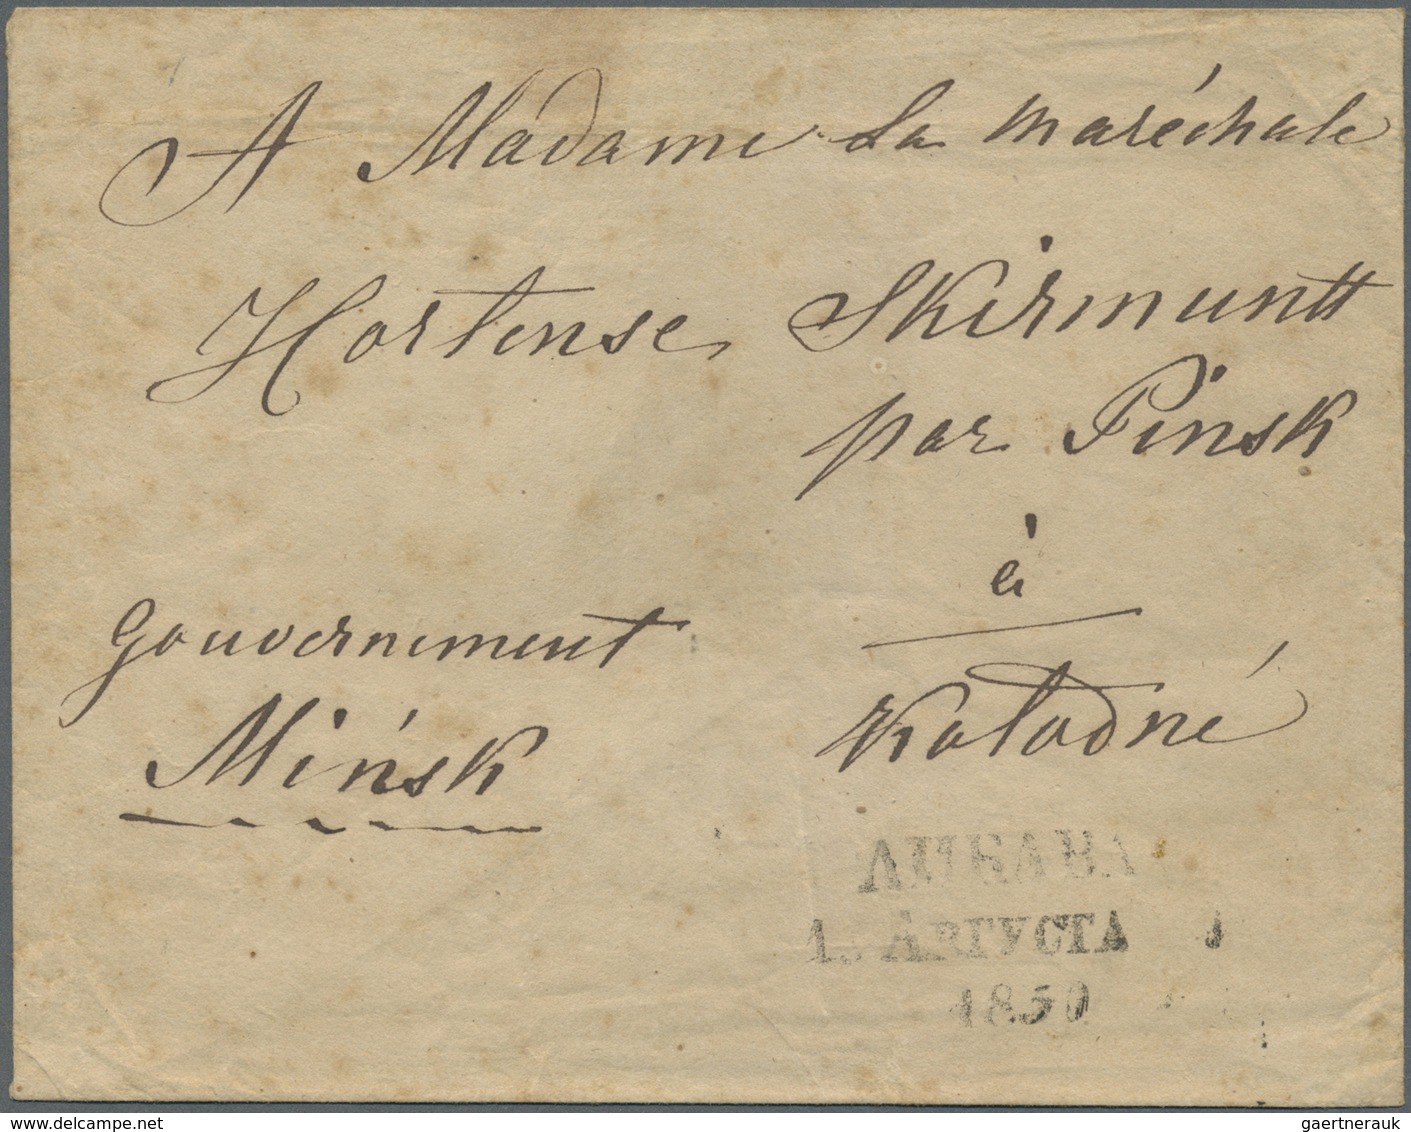 A Madame La Maréchale
Hortense Skirmuntt
par Pinsk
à
Gouvernement
Kołodné
Mińsk
ЛИБАВА
АВГУСТА
1850
gaertnerauk